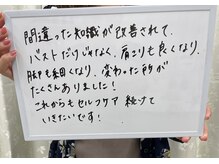 間違った知識が改善されて、
バストだけじゃなく、肩こりも良くなり、
脚も細くなり、変わった所が
たくさんありました！
これからもセルフケア続けて
いきたいです！